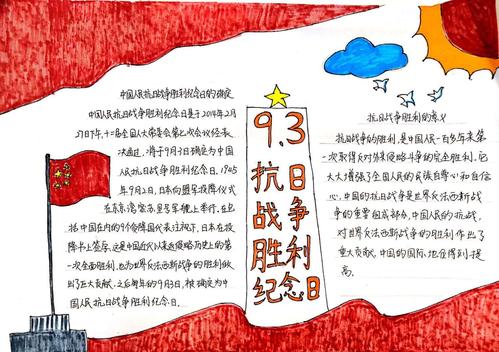 中国人民抗日战争胜利纪念日的确定
中国人民抗日战争胜利纪念日是于2014年2月
27日下午,十二届全国人大常委会第七次会议经表
决通过,将于9月3日确定为中国
人民抗日战争胜利纪念日.1945
年9月2日,日本向盟军投降仪式
在东京湾密苏里号军舰上举行.在包
括中国在内的9个受降国代表注视下,日本在投
降书上签字,这是中国近代以来反侵略历史上的第
一次全面胜利,也为世界反法西斯战争的胜利做
出了巨大贡献.之后每年的9月3日,被确定为中
国人民抗日战争胜利纪念日.
9.3
抗日
战争
胜利
纪念日
抗日战争胜利的意义
抗日战争的胜利,是中国人民一百多年来第
一次取得反对外来侵略斗争的完全胜利.它
大大增强了全国人民的民族自尊心和自信
心.中国的抗日战争是世界反法西斯战
争的重要组成部分,中国人民的抗战,
对世界反法西斯战争的胜利作出了
重大贡献,中国的国际地位得到提
高.